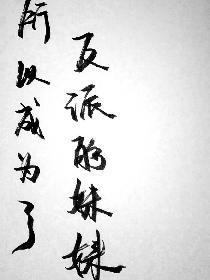 反派的妹妹
所以成为了